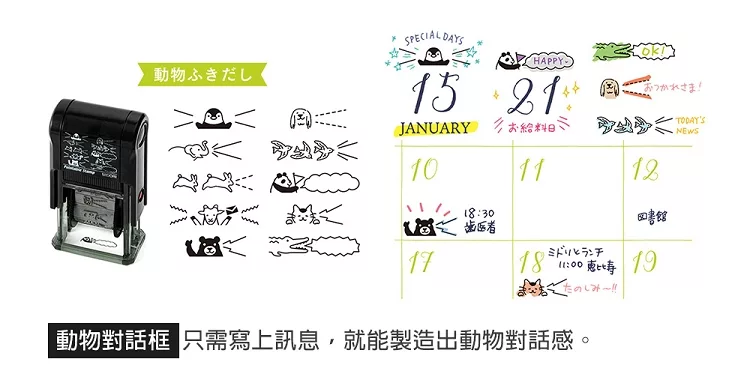 動物ふきだし
SPECIAL DAYS
15
JANUARY
HAPPY
21
お給料日
OK!
おつかれさま!
TODAY'S
NEWS
10
11
12
18:30
歯医者
図書館
17
18
ミドリとランチ
11:00 恵比寿
たのしみ〜!!
19
動物對話框 只需寫上訊息，就能製造出動物對話感。